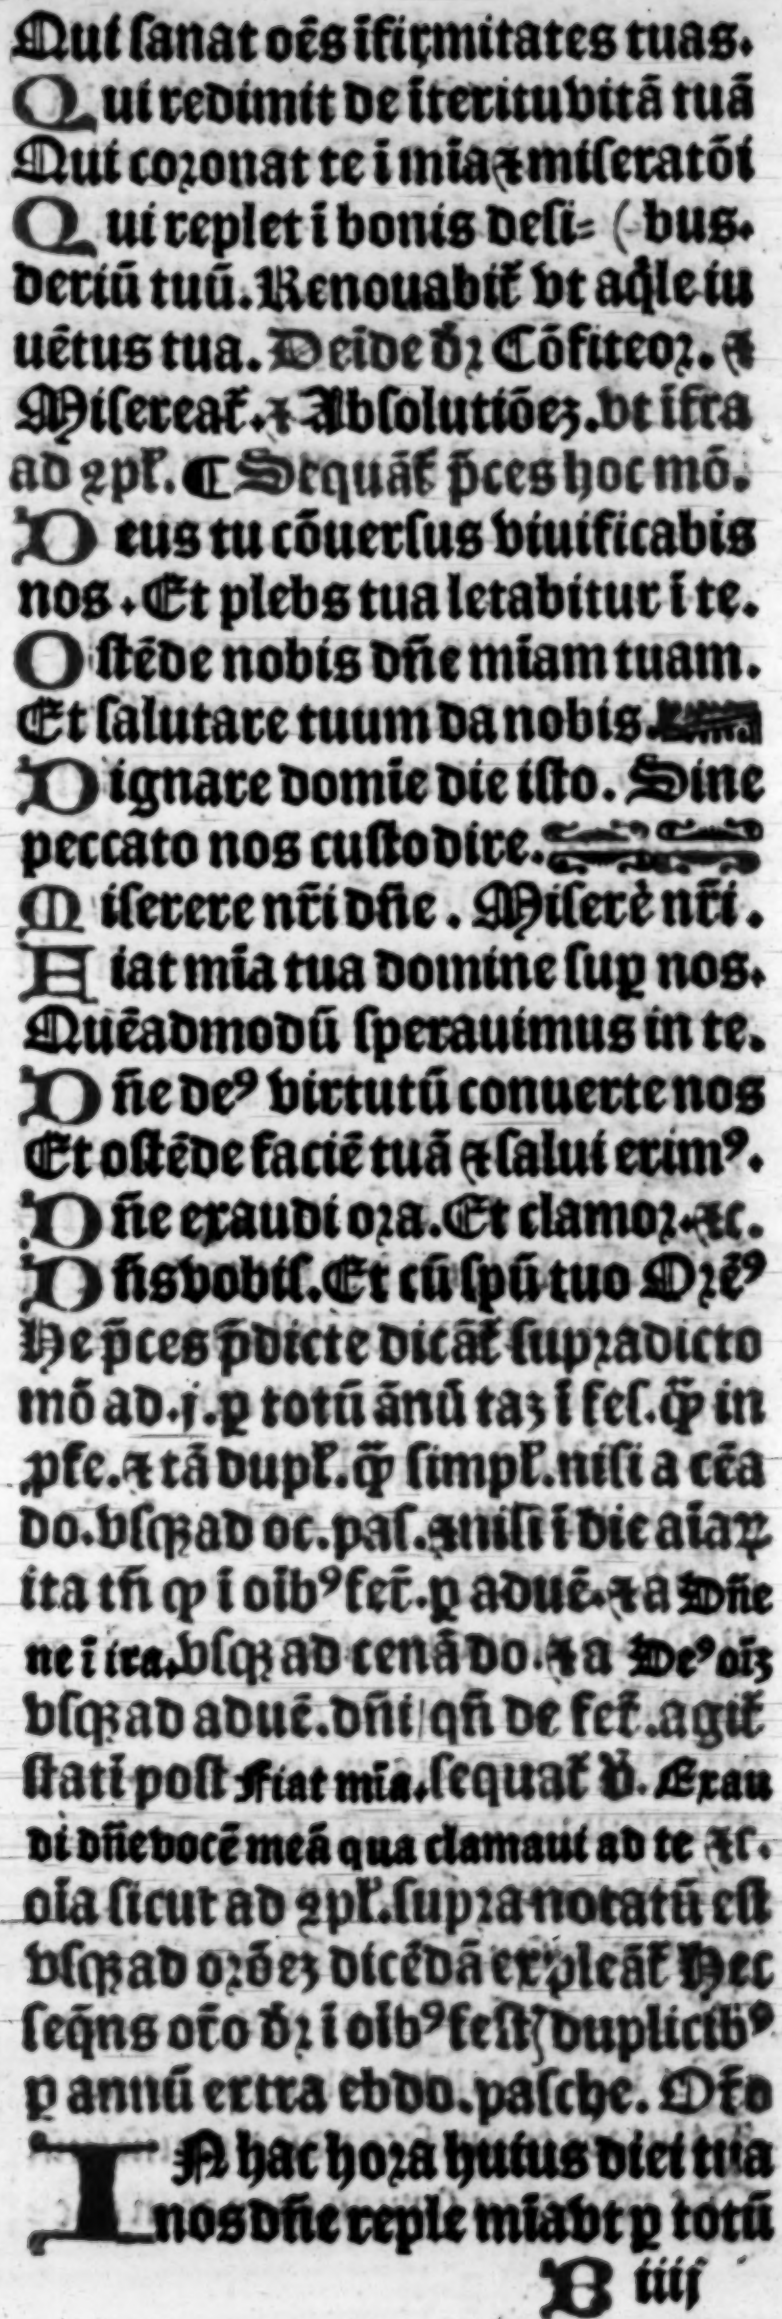 Qui ſanat oēs īfirmitates tuas.
Qui redimit de īteritu vitā tuā
Qui coꝛonat te ī mīa ⁊ miſeratōi
Qui replet ī bonis deſi⸗ ( bus.
deriū tuū. Renouabit̄ vt aq̄le iu
uētus tua. Deīde dꝛ̄ Cōfiteoꝛ. ⁊
Miſereat̄. ⁊ Abſolutiōeꝫ. vt īfra
ad ꝯpl̄. ¶ Sequāt̄ p̄ces hoc mō.
Deus tu cōuerſus viuificabis
nos. Et plebs tua letabitur ī te.
Oſtēde nobis dn̄e mīam tuam.
Et ſalutare tuum da nobis.
Dignare domīe die iſto. Sine
peccato nos cuſtodire.
Miſerere nr̄i dn̄e. Miſerē nr̄i.
Fiat mīa tua domine ſuꝑ nos.
Quēadmodū ſperauimus in te.
Dn̄e deꝰ virtutū conuerte nos
Et oſtēde faciē tuā ⁊ ſalui erimꝰ.
Dn̄e exaudi oꝛa. Et clamoꝛ. ⁊c.
Dn̄s vobiſ. Et cū ſpū tuo Oꝛēꝰ
He p̄ces p̄dicte dicāt̄ ſupꝛadicto
mō ad .j. ꝑ totū ānū taꝫ ī feſ. ꝙ̄ in
ꝓfe. ⁊ tā dupl̄. ꝙ̄ ſimpl̄. niſi a cēa
do. vſqꝫ ad oc. paſ. ⁊ niſi ī die aīaꝝ
ita tn̄ ꝙ ī oībꝰ fer̄. ꝑ aduē. ⁊ a Dn̄e
ne ī ira. vſqꝫ ad cenā do. ⁊ a Deꝰ oīꝫ
vſqꝫ ad aduē. dn̄i / qn̄ de fer̄. agit̄
ſtatī poſt Fiat mīa. ſequat̄ v̄. Exau
di dn̄e vocē meā qua clamaui ad te ⁊c.
oīa ſicut ad ꝯpl̄. ſupꝛa notatū eſt
vſqꝫ ad oꝛōeꝫ dicēdā expleāt̄ Hec
ſeq̄ns or̄o dꝛ̄ ī oībꝰ feſt / duplicibꝰ
ꝑ annū extra ebdo. paſche. Or̄o
IN hac hoꝛa huius diei tua
nos dn̄e reple mīa vt ꝑ totū
B iiij